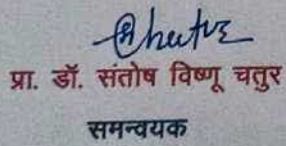 प्रा. डॉ. संतोष विष्णू चतुर
समन्वयक